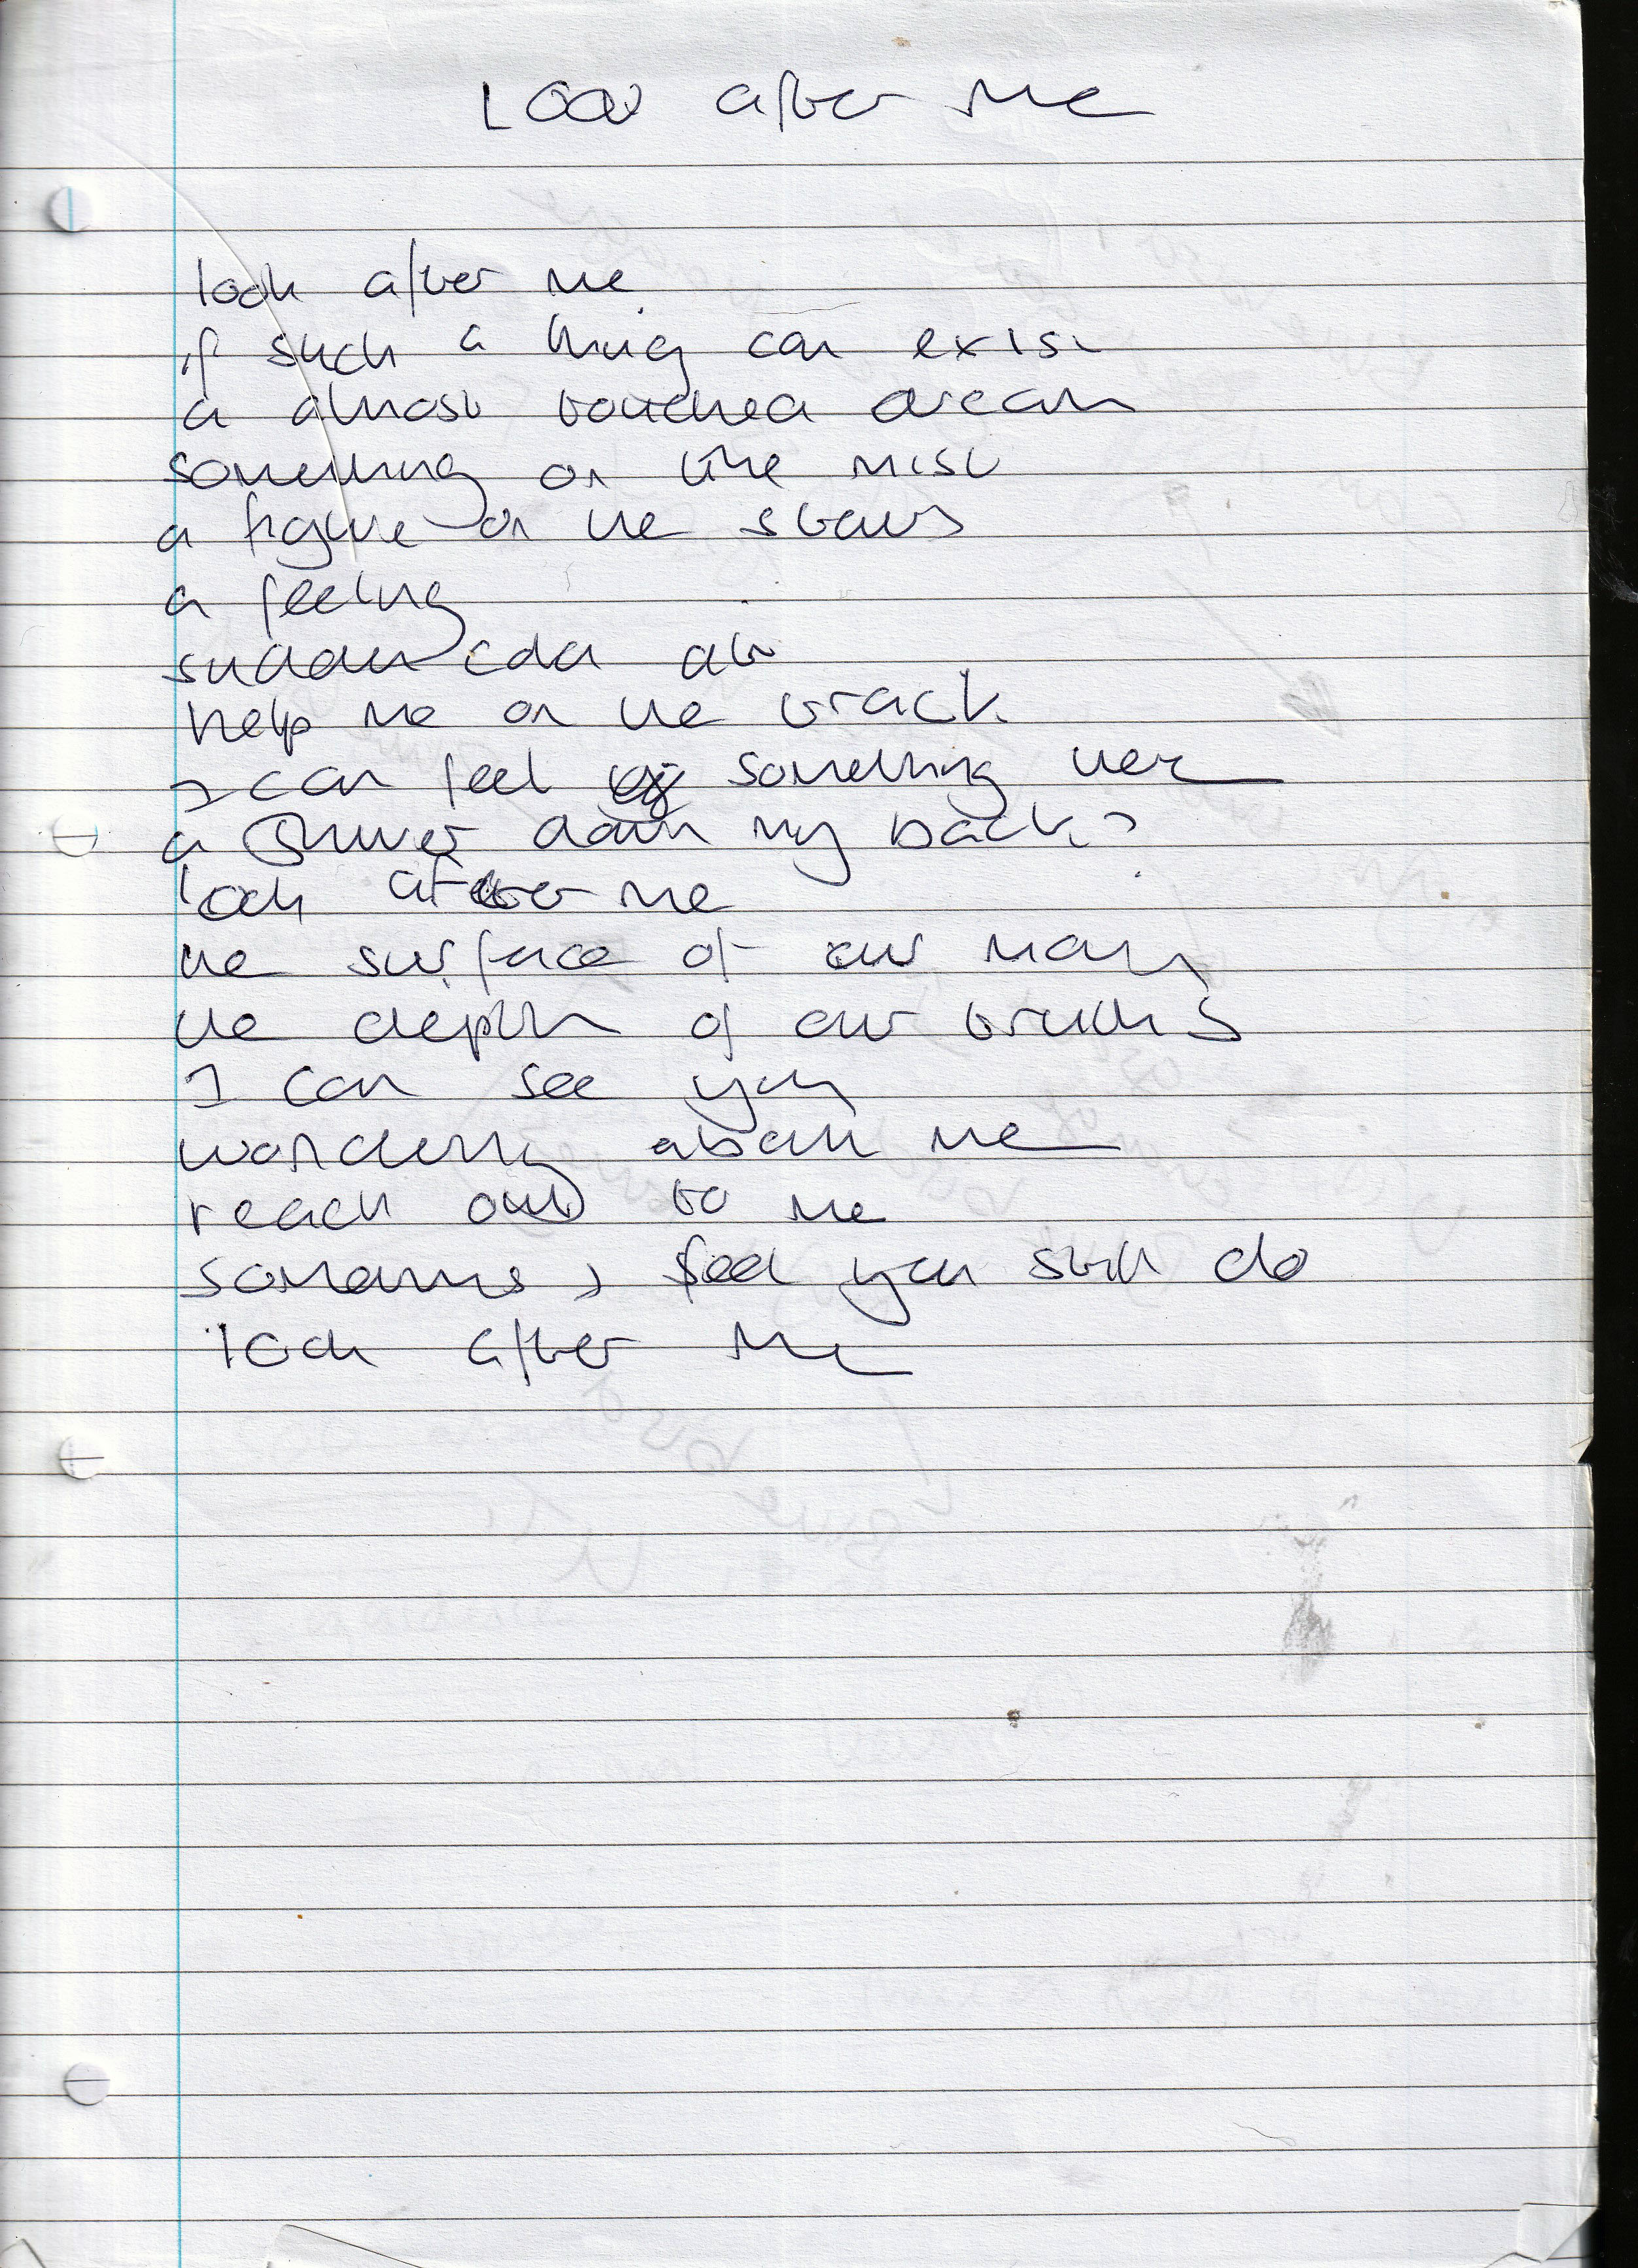 Look after me
look after me
if such a thing can exist
a almost touched dream
something on the mist
a figure on the stairs
a feeling
sudden cold air
help me on the track
I can feel something here
a shiver down my back?
look after me
the surface of our
the depth of our truths
I can see you
wondering about me
reach out to me
sometimes I feel you still do
look after me